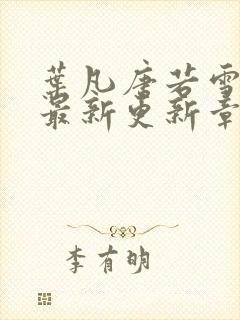 葉凡唐若雪
最新更新章
李有明